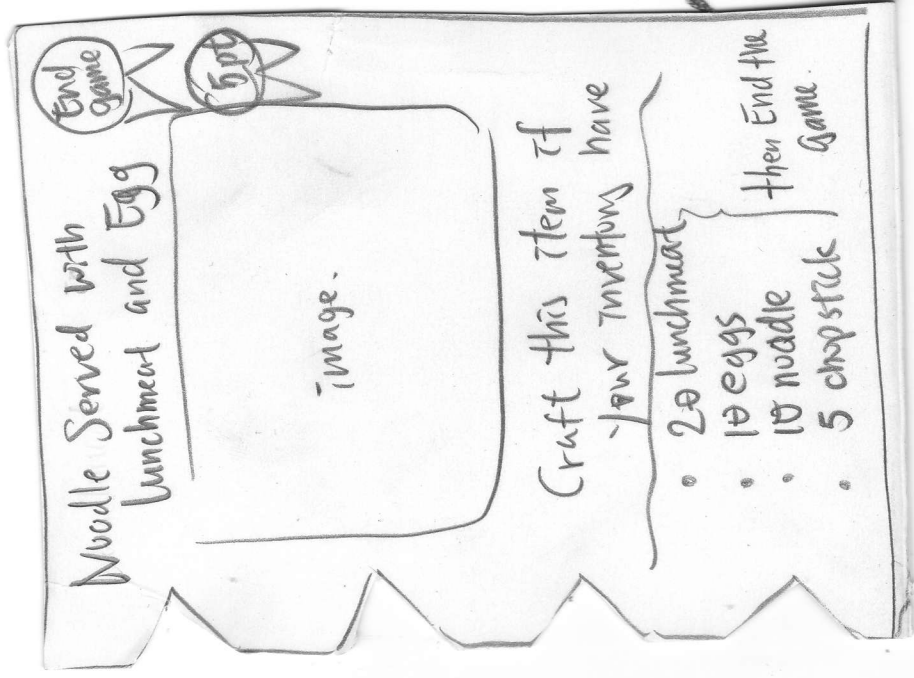 Noodle Served with
Lunchmeat and Egg
End
game
5pt
image.
Craft this item if
your inventory have
• 20 lunchmeat
• 10 eggs
• 10 noodle
• 5 chopstick
then End the
game.